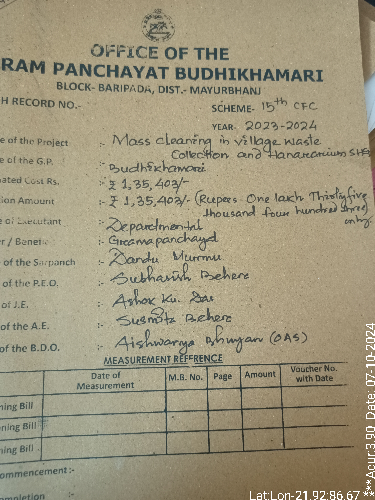 OFFICE OF THE
RAM PANCHAYAT BUDHIKHAMARI
BLOCK- BARIPADA, DIST.- MAYURBHANJ
H RECORD NO.-
SCHEME- 15th CFC
YEAR- 2023-2024
e of the Project :- Mass cleaning in village waste
Collection and Hanararium SHG
e of the G.P. :- Budhikhamari
ated Cost Rs. :- ₹ 1,35,403/-
ion Amount :- ₹ 1,35,403/- (Rupees One lakh Thirtyfive
thousand four hundred three
only.
e of Executant :- Departmental
er / Benefic :- Gramapanchayd
e of the Sarpanch :- Dandu Murmu
of the P.E.O. :- Subhasish Behera
of J.E. :- Ashok Ku. Das
of the A.E. :- Susmita Behera
of the B.D.O. :- Aishwarya Bhuyan (OAS)
MEASUREMENT REFERENCE
Date of Measurement M.B. No. Page Amount Voucher No. with Date
ning Bill
ning Bill
ning Bill
ommencement :-
ompletion
Lat:Lon-21.92:86.67
***Acur:3.90 Date: 07-10-2024